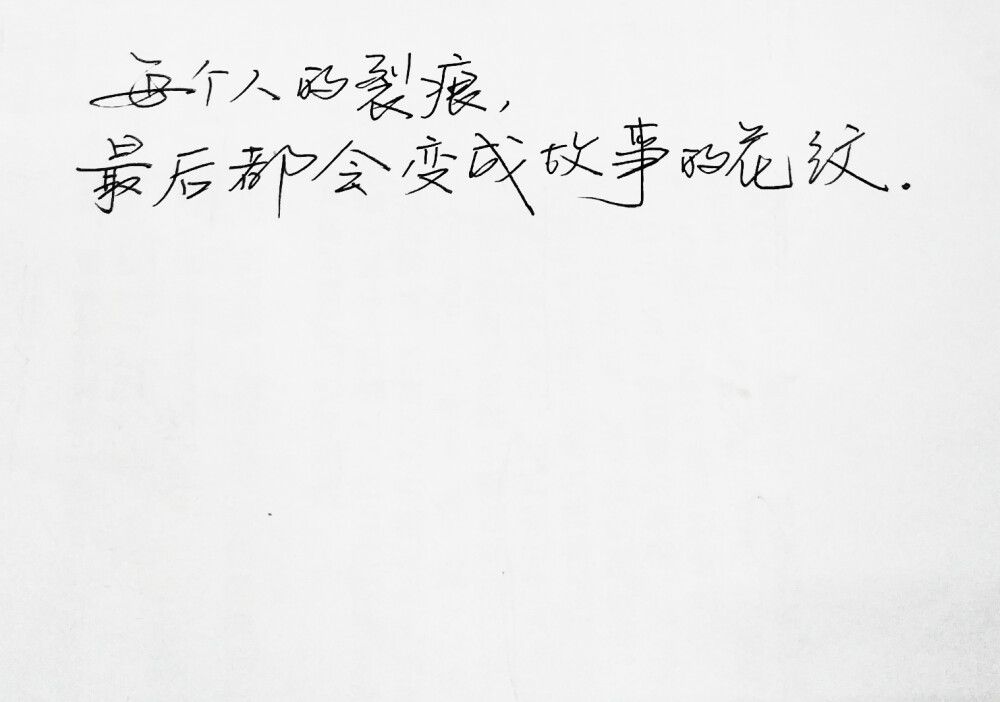 每个人的裂痕,
最后都会变成故事的花纹.